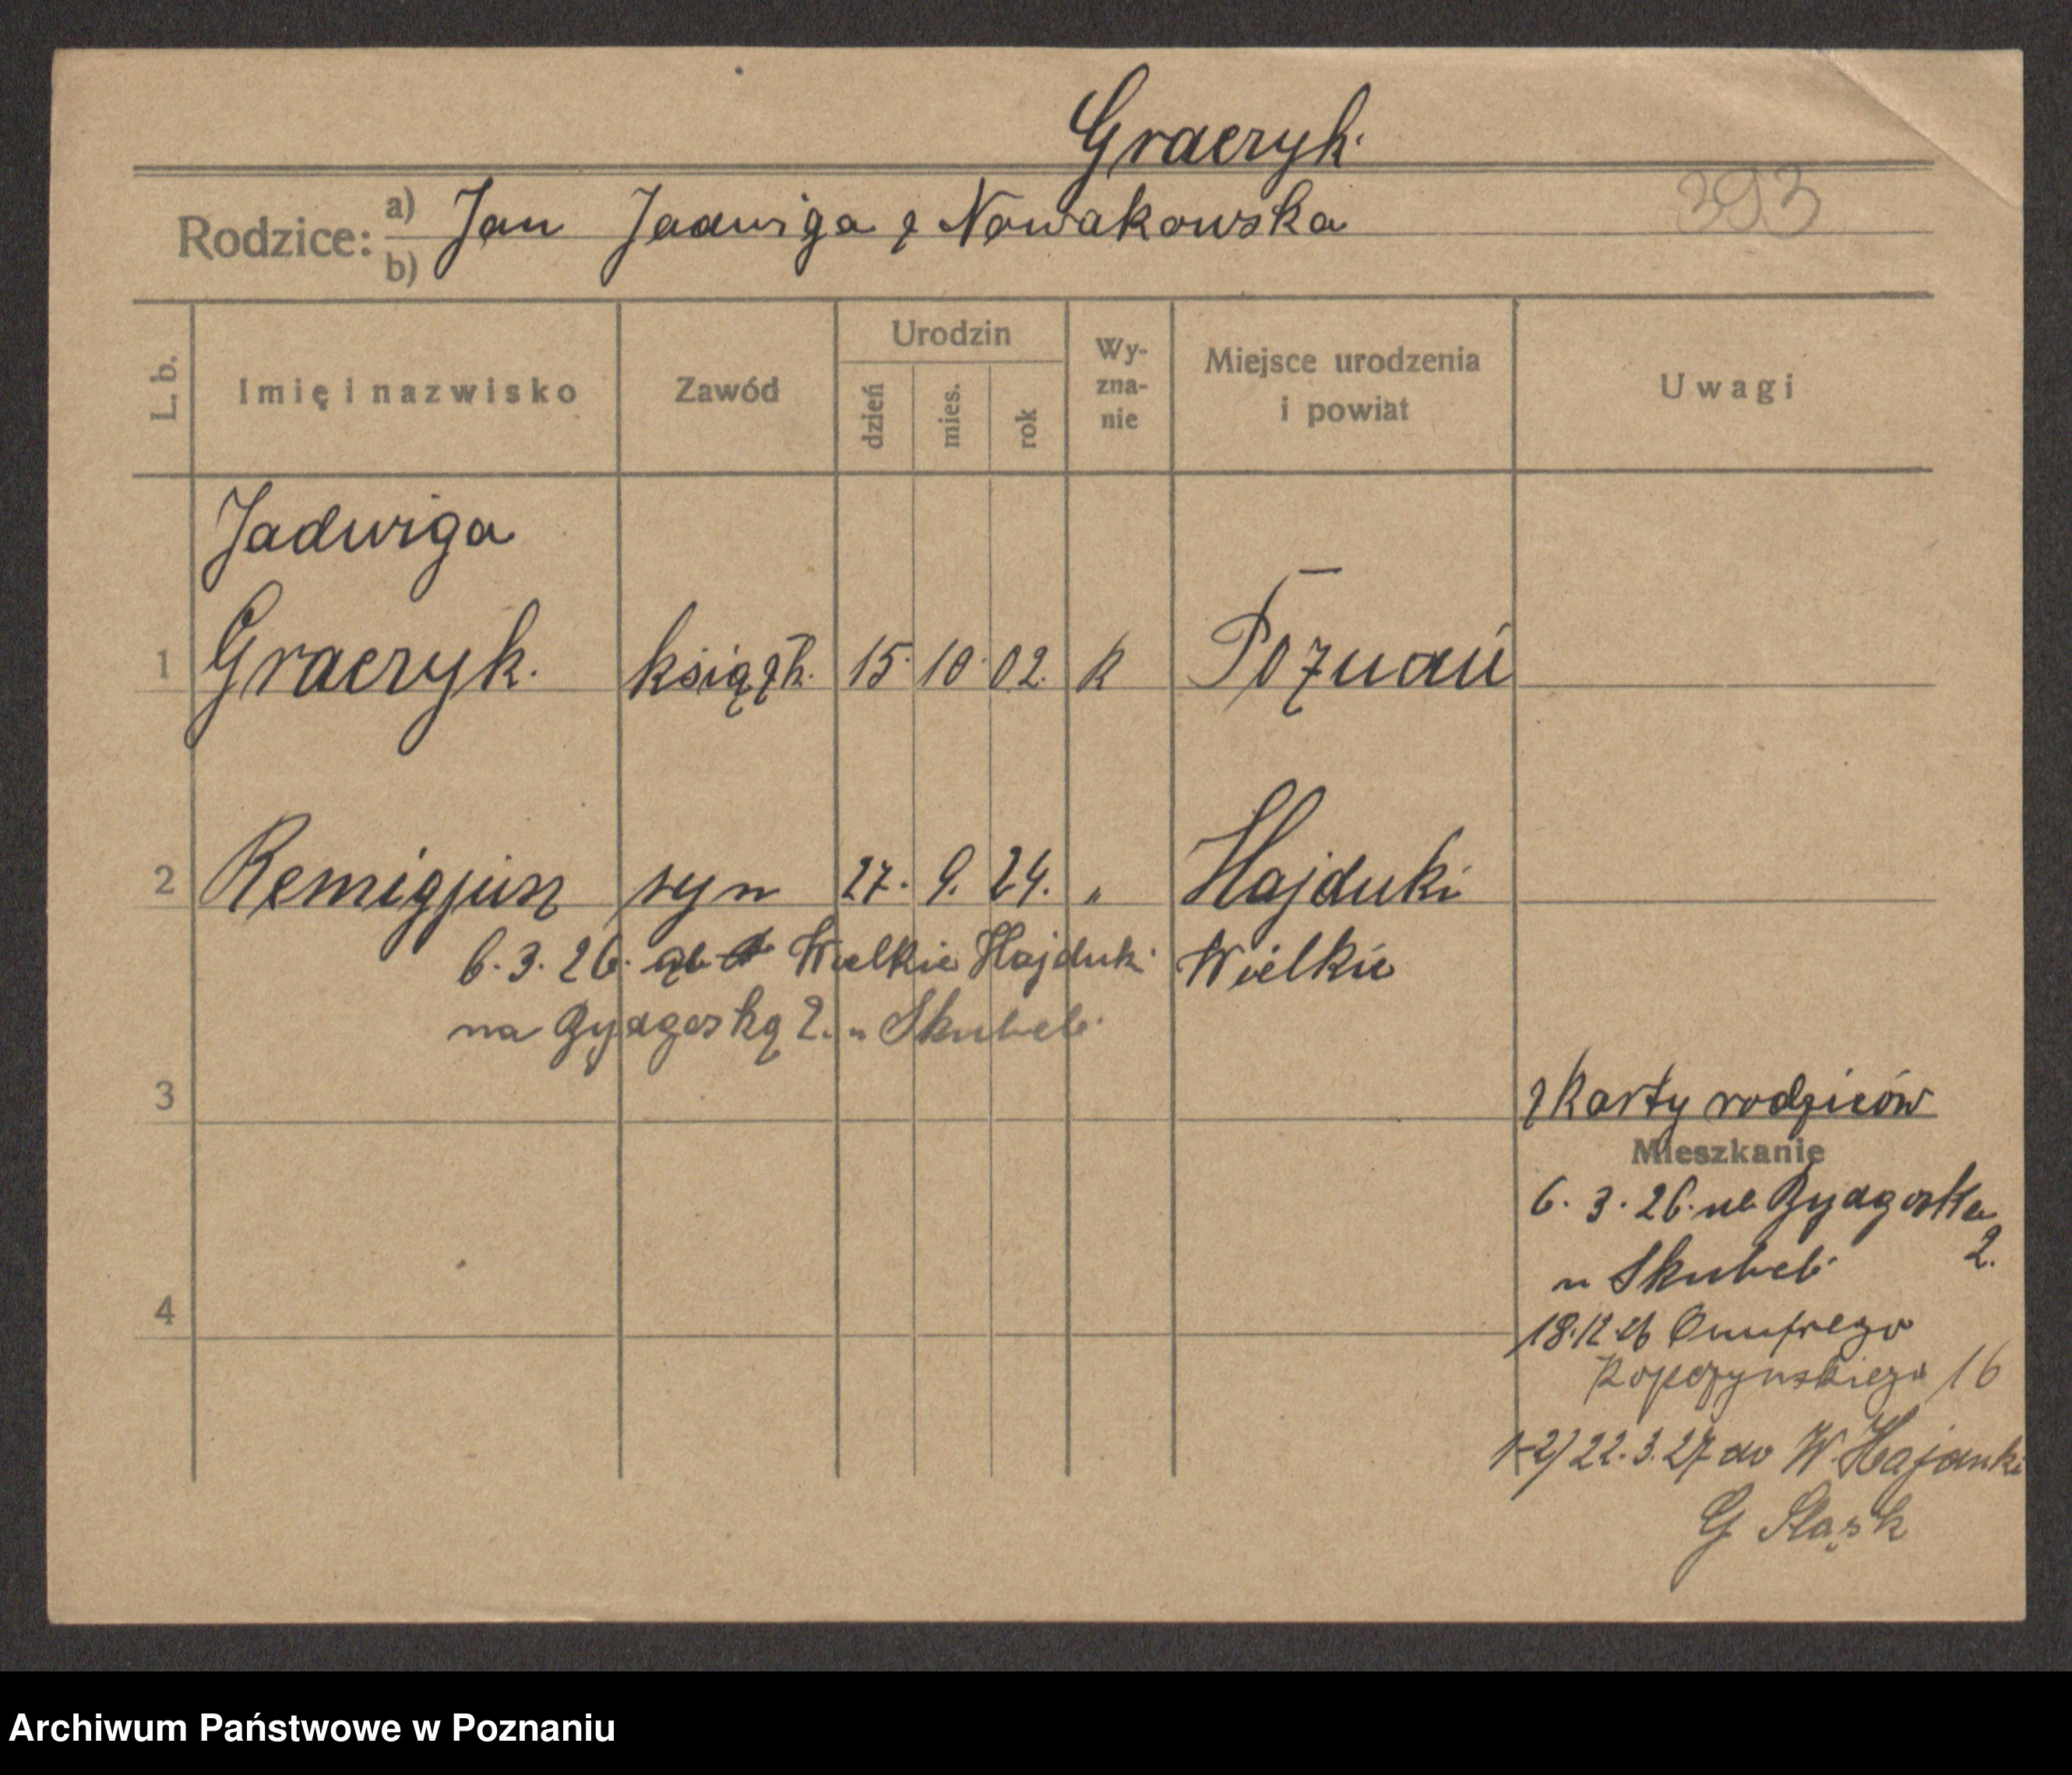 Graczyk.
393
Rodzice: a) Jan Jadwiga z Nowakowska
b)
L. b. Imię i nazwisko Zawód Urodzin dzień mies. rok Wy-zna-nie Miejsce urodzenia i powiat Uwagi
Jadwiga
1 Graczyk. książk. 15. 10. 02. k Poznań
2 Remigjusz syn 27. 9. 24. " Hajduki
6. 3. 26. Wielkie Hajduki Wielkie
na Bydgoską 2. u Skubel
3
z Karty rodziców
Mieszkanie
6. 3. 26. Bydgoska
2.
u Skubel
4
18.12.26 Onufrego
Kopczynskiego 16
1-2) 22. 3. 27 do W. Hajduki
G Sląsk
Archiwum Państwowe w Poznaniu